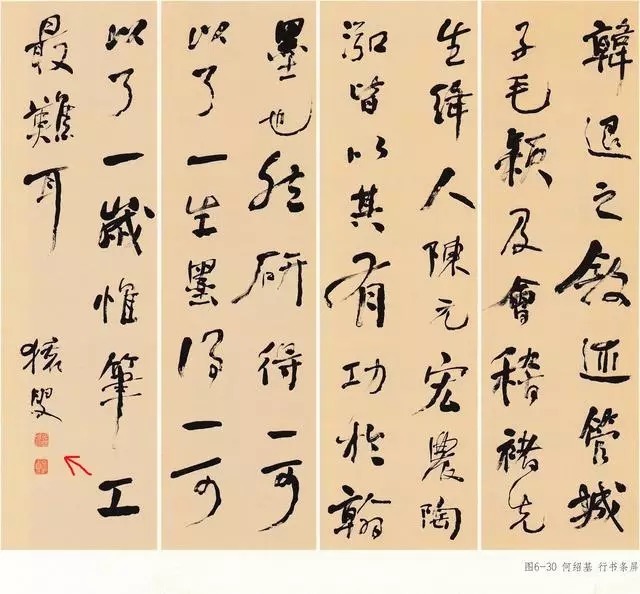 韓退之敘述管城
子毛穎及會稽褚先
生絳人陳元宏農陶
泓皆以其有功於翰
墨也然研得一可
以了一生墨得一可
以了一歲惟筆工
最難耳
猿叟
图6-30 何绍基 行书条屏